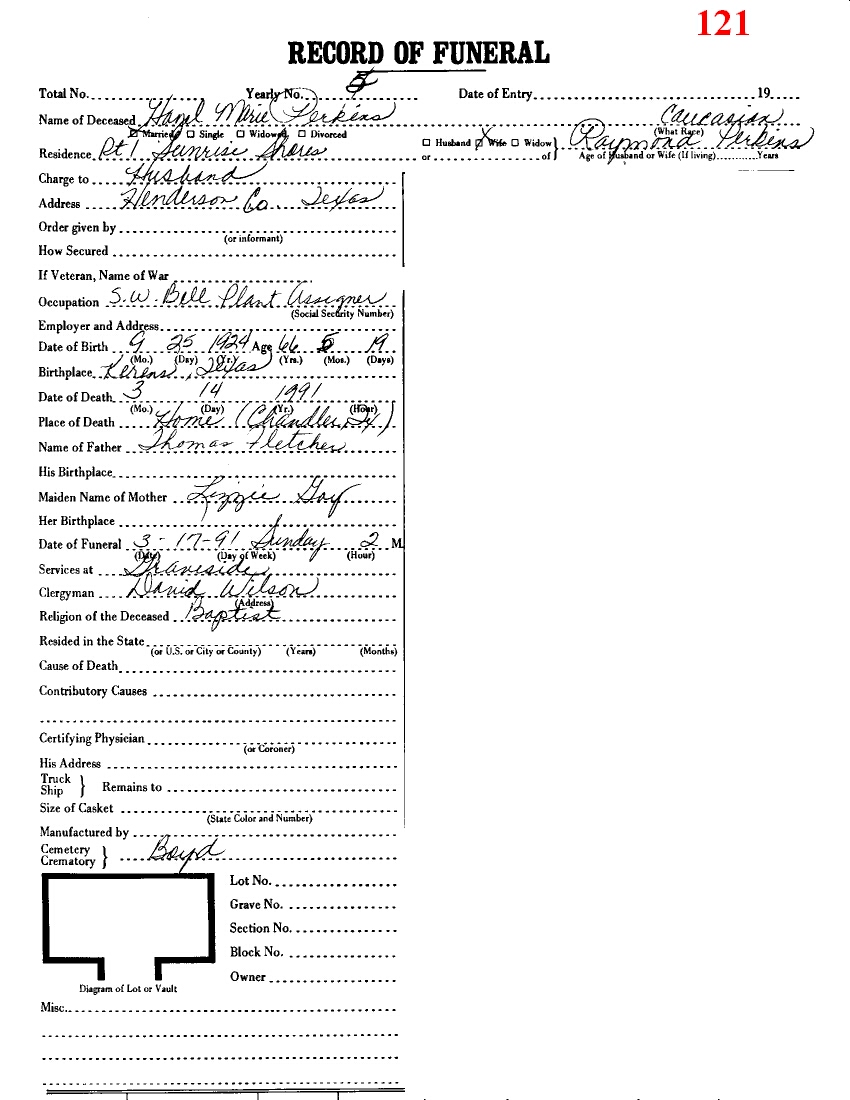 121
RECORD OF FUNERAL
Total No. Yearly No. 5 Date of Entry 19
Name of Deceased Hazel Marie Perkins Caucasian
Married Single Widowed Divorced (What Race)
Residence Rt 1 Sunrise Shores Husband Wife Widow or of Raymond Perkins
Age of Husband or Wife (If living) Years
Charge to Husband
Address Henderson Co. Texas
Order given by
(or informant)
How Secured
If Veteran, Name of War
Occupation S.W. Bell Plant Assigner
(Social Security Number)
Employer and Address
Date of Birth 9 25 1924 Age 66 5 19
(Mo.) (Day) (Yr.) (Yrs.) (Mos.) (Days)
Birthplace Kerens, Texas
Date of Death 3 14 1991
(Mo.) (Day) (Yr.) (Hour)
Place of Death Home (Chandler, Tx)
Name of Father Thomas Fletcher
His Birthplace
Maiden Name of Mother Lizzie Gay
Her Birthplace
Date of Funeral 3-17-91 Sunday 2 M
(Date) (Day of Week) (Hour)
Services at Graveside
Clergyman David Wilson
(Address)
Religion of the Deceased Baptist
Resided in the State
(or U.S. or City or County) (Years) (Months)
Cause of Death
Contributory Causes
Certifying Physician
(or Coroner)
His Address
Truck Ship } Remains to
Size of Casket
(State Color and Number)
Manufactured by
Cemetery Crematory } Boyd
Lot No.
Grave No.
Section No.
Block No.
Owner
Diagram of Lot or Vault
Misc.